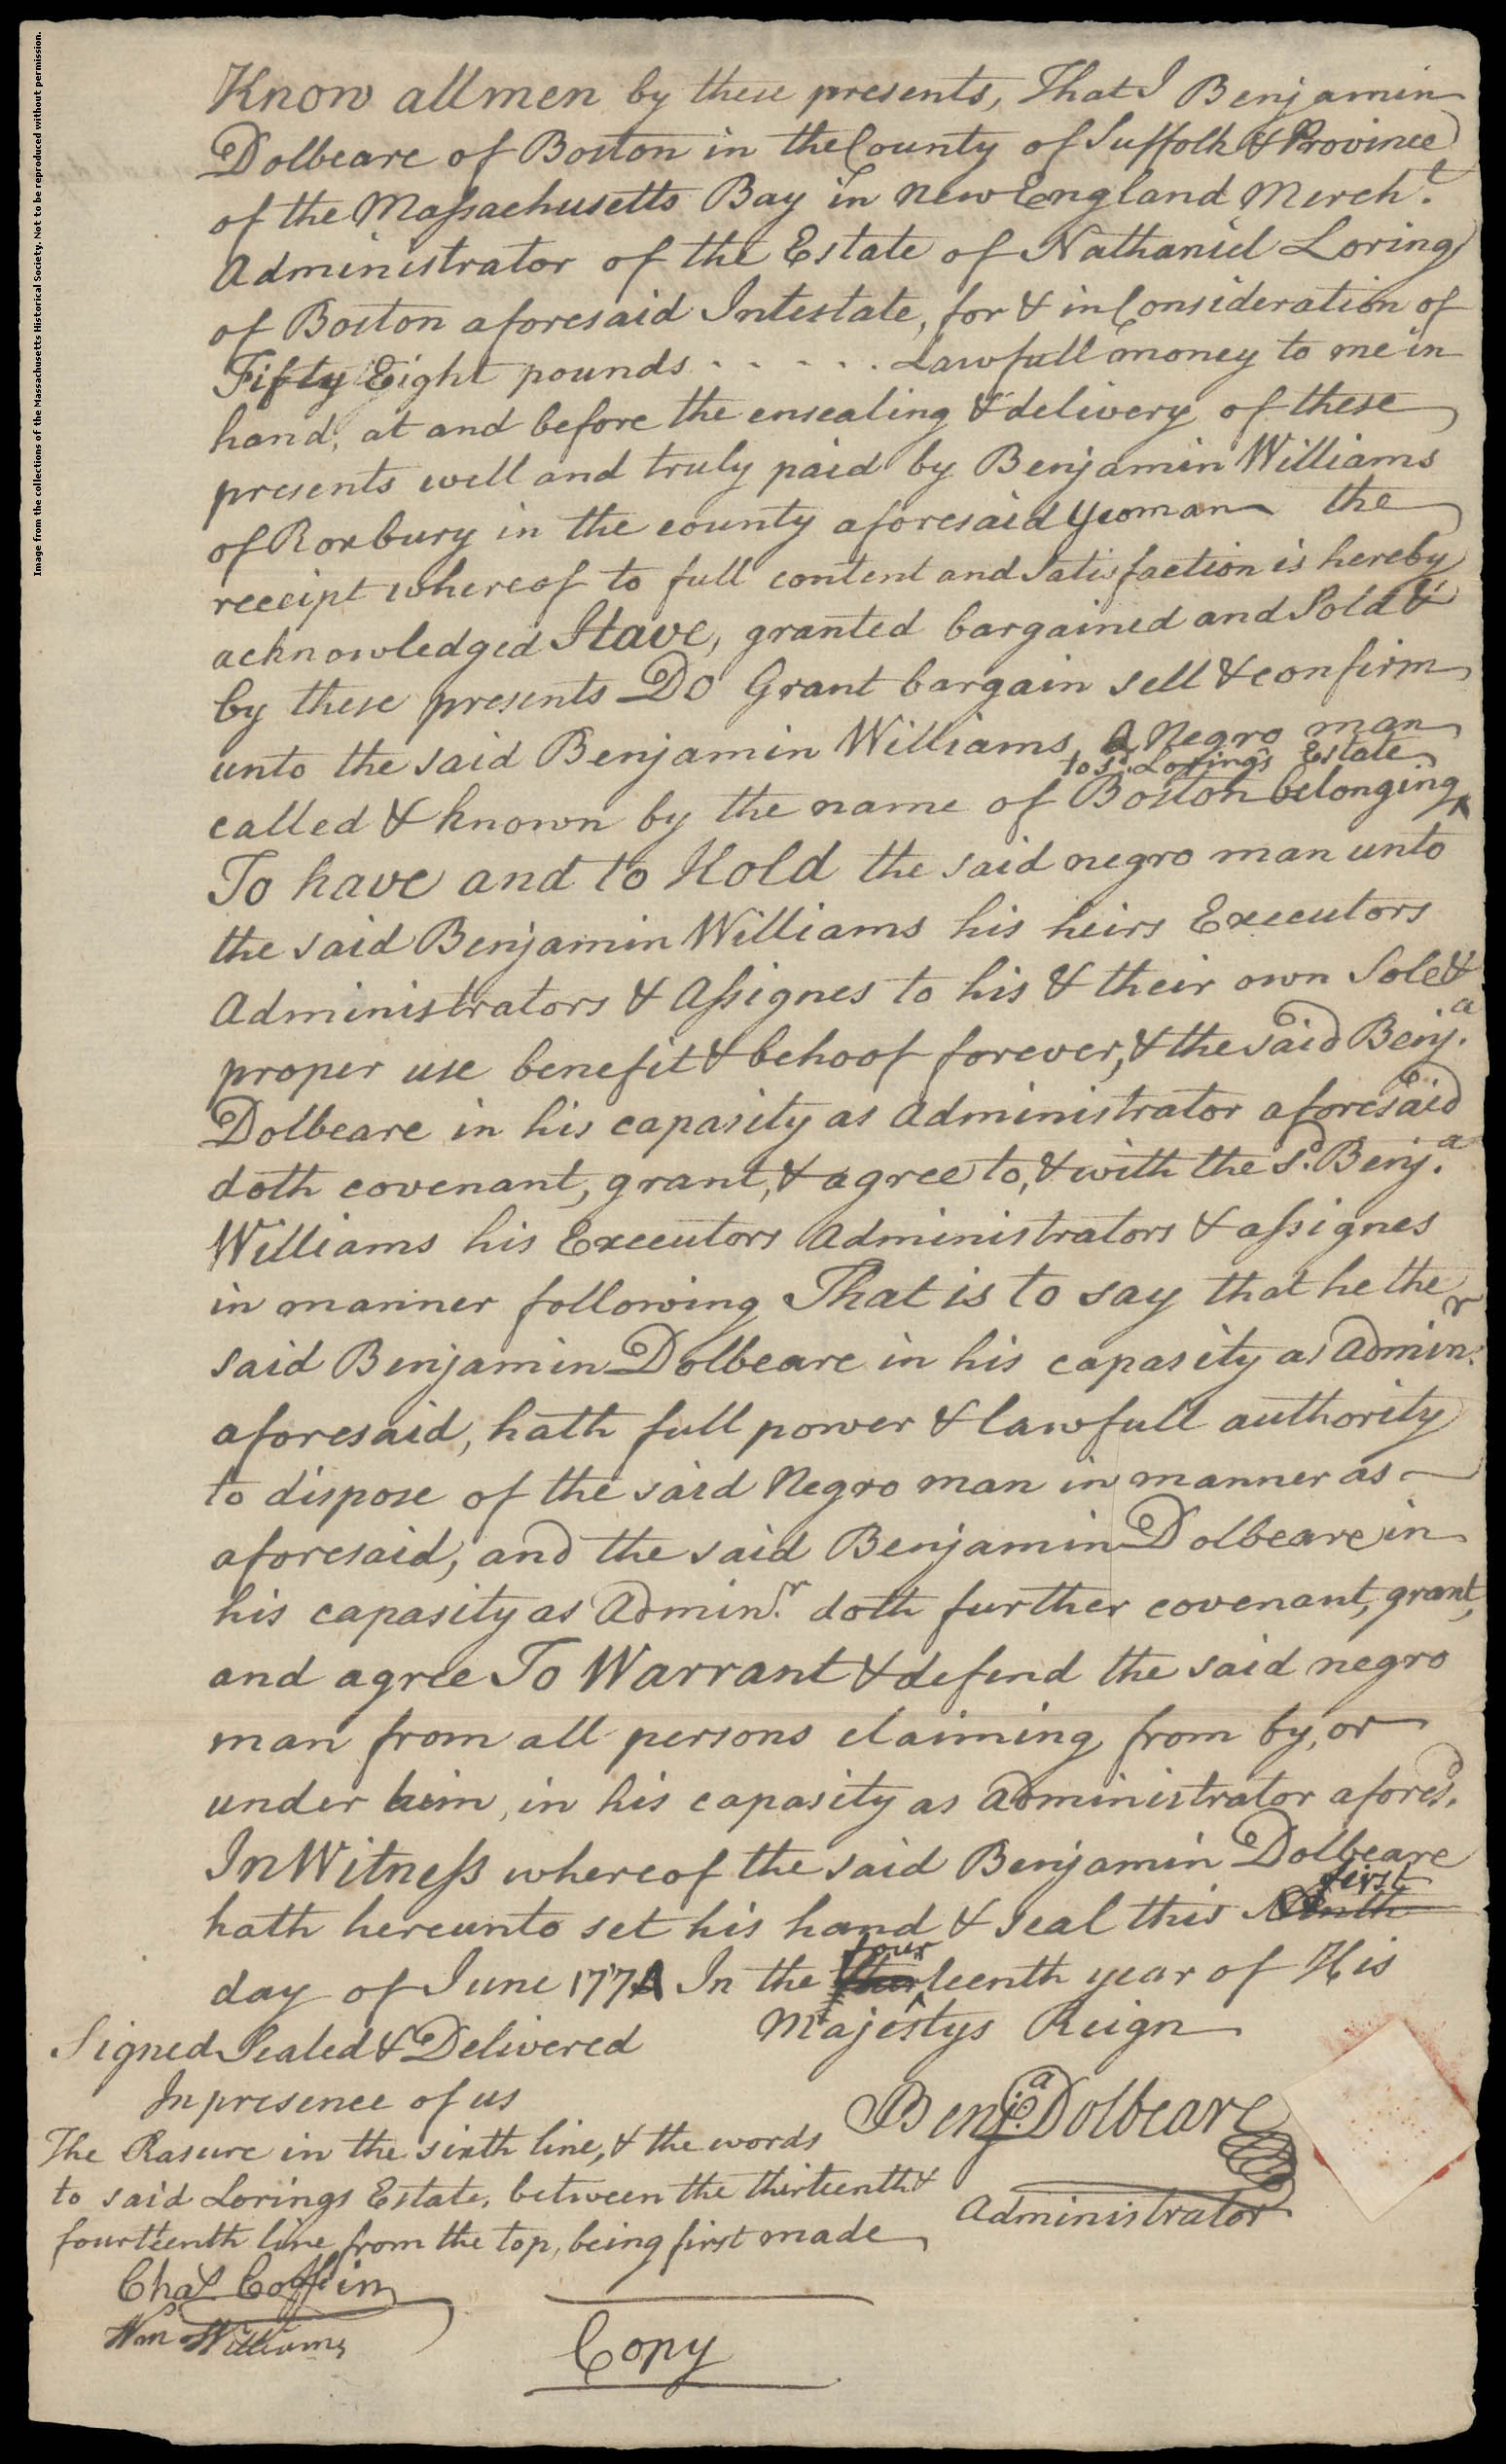 Image from the collections of the Massachusetts Historical Society. Not to be reproduced without permission.
Know all men by these presents, That I Benjamin
Dolbeare of Boston in the County of Suffolk & Province
of the Maſsachusetts Bay in New England Merch.t
Administrator of the Estate of Nathaniel Loring
of Boston aforesaid Intestate, for & in Consideration of
Fifty Eight pounds - - - - - . Lawfull money to me in
hand, at and before the ensealing & delivery of these
presents well and truly paid by Benjamin Williams
of Roxbury in the county aforesaid Yeoman the
receipt whereof to full content and Satisfaction is hereby
acknowledged Have, granted bargained and Sold &
by these presents Do Grant bargain sell & confirm
unto the said Benjamin Williams, a Negro man
to s.d Loring's Estate
called & known by the name of Boston belonging ^
To have and to Hold the said negro man unto
the said Benjamin Williams his heirs Executors
Administrators & Aſsignes to his & their own Sole &
proper use benefit & behoof forever, & the said Benj.a
Dolbeare in his capasity as Administrator aforesaid
doth covenant, grant, & agree to, & with the s.d Benj.a
Williams his Executors Administrators & aſsignes
in manner following That is to say that he the
said Benjamin Dolbeare in his capasity as Admin.r
aforesaid, hath full power & lawfull authority
to dispose of the said Negro man in manner as
aforesaid, and the said Benjamin Dolbeare in
his capasity as Admin.r doth further covenant, grant,
and agree To Warrant & defend the said negro
man from all persons claiming from by, or
under him, in his capasity as Administrator afores.d
In Witneſs whereof the said Benjamin Dolbeare
first
hath hereunto set his hand & seal this
four
day of June 1774 In the ^teenth year of His
Majestys Reign
Signed Sealed & Delivered
In presence of us
Benj.a Dolbeare
Administrator
The Rasure in the sixth line, & the words
to said Lorings Estate, between the thirteenth &
fourteenth line from the top, being first made
Cha.s Coffin
Wm Williams
Copy